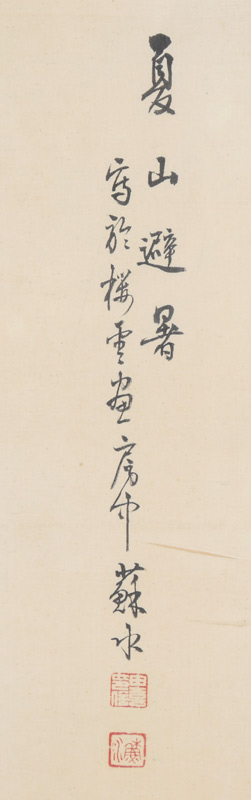 夏山避暑
寫於櫻雲画房中 蘇水